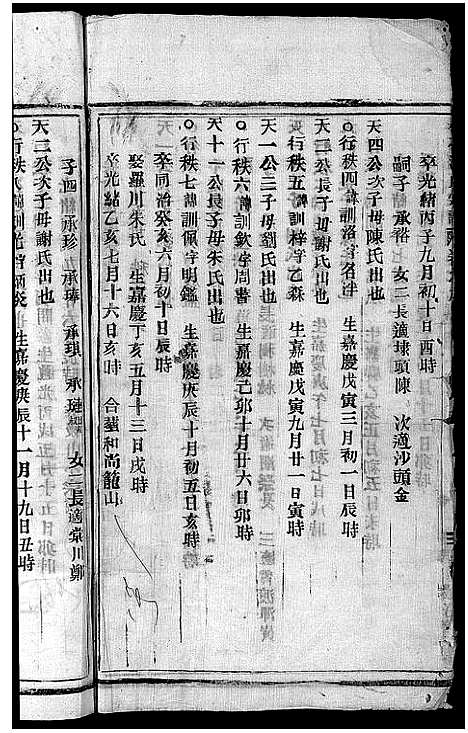 卒光緒丙子九月初十日酉時
嗣子 承裕 女二長適球頭陳 次適沙頭金
天四公次子母陳氏出也
行秩四諱訓洛字名洋 生嘉慶戊寅三月初一日辰時
天二公長子母謝氏出也
行秩五諱訓梓字乙森 生嘉慶戊寅九月廿一日寅時
天一公三子母劉氏出也
行秩六諱訓欽字周書 生嘉慶己卯十月廿六日卯時
天十一公長子母朱氏出也
行秩七諱訓佩字明鑑 生嘉慶庚辰十月初五日亥時
卒同治癸亥六月初十日辰時
娶羅川朱氏 生嘉慶丁亥五月十三日戌時
卒光緒乙亥七月十六日亥時 合塟和尚龍山
子四 承珍 承琪 承璉 女二長適彙川鄭
天二公次子母謝氏出也
行秩八諱訓光字炳炎 生嘉慶庚辰十一月十九日丑時